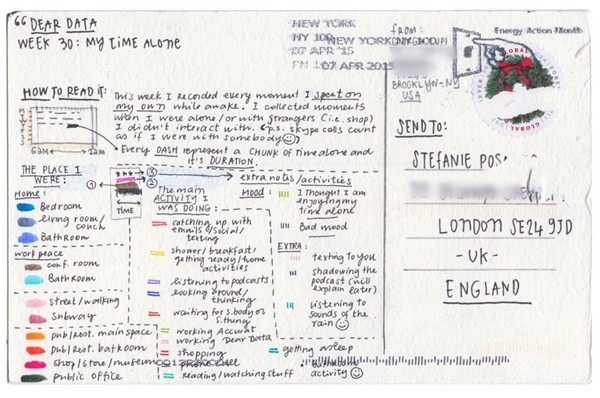 DEAR DATA
WEEK 30: MY TIME ALONE
HOW TO READ IT:
This week I recorded every moment I spent on
my own while awake. I collected moments
when I were alone/or with strangers (i.e. shop)
I didn't interact with. (p.s. skype calls count
as if I were with somebody)
• Every DASH represent a CHUNK of time alone and
it's DURATION.
MTWTFSS
6am 2am
THE PLACE I
WERE:
Home:
Bedroom
living room/
couch
Bathroom
work peace
conf. room
Bathroom
street/walking
Subway
pub/rest. main space
Pub/rest. bathroom
shop/store/museum
public office
1
2
3
TIME
The main
ACTIVITY I
WAS DOING:
catching up with
emails/social/
texting
shower/breakfast/
getting ready/home
activities
listening to podcasts
looking around/
thinking
waiting for s.body or
s.thing
working Accurat
working Dear Data
shopping
phone call
reading/watching stuff
getting asleep
bathroom
activity
extra notes/activities
MOOD:
I thought I am
enjoying my
time alone
Bad mood
EXTRA:
texting to you
shadowing the
podcast (will
explain later)
listening to
sounds of the
rain
NEW YORK
NY 100
07 APR '15
NEW YORK NY
07 APR 2015
FROM:
BROOKLYN-NY
USA
Energy Action Month
GLOBAL
SEND TO:
STEFANIE POS
LONDON SE24 9JD
-UK-
ENGLAND